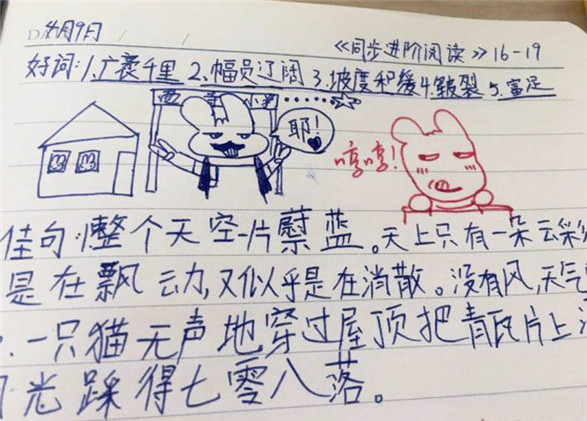 DA 4月9日
《同步进阶阅读》16-19
好词:1.广袤千里 2.幅员辽阔 3.坡度和缓 4.皲裂 5.富足
小
耶!
哼哼!
佳句:1整个天空一片蔚蓝。天上只有一朵云彩
是在飘动,又似乎是在消散。没有风,天气
.一只猫无声地穿过屋顶把青瓦片上
光踩得七零八落。